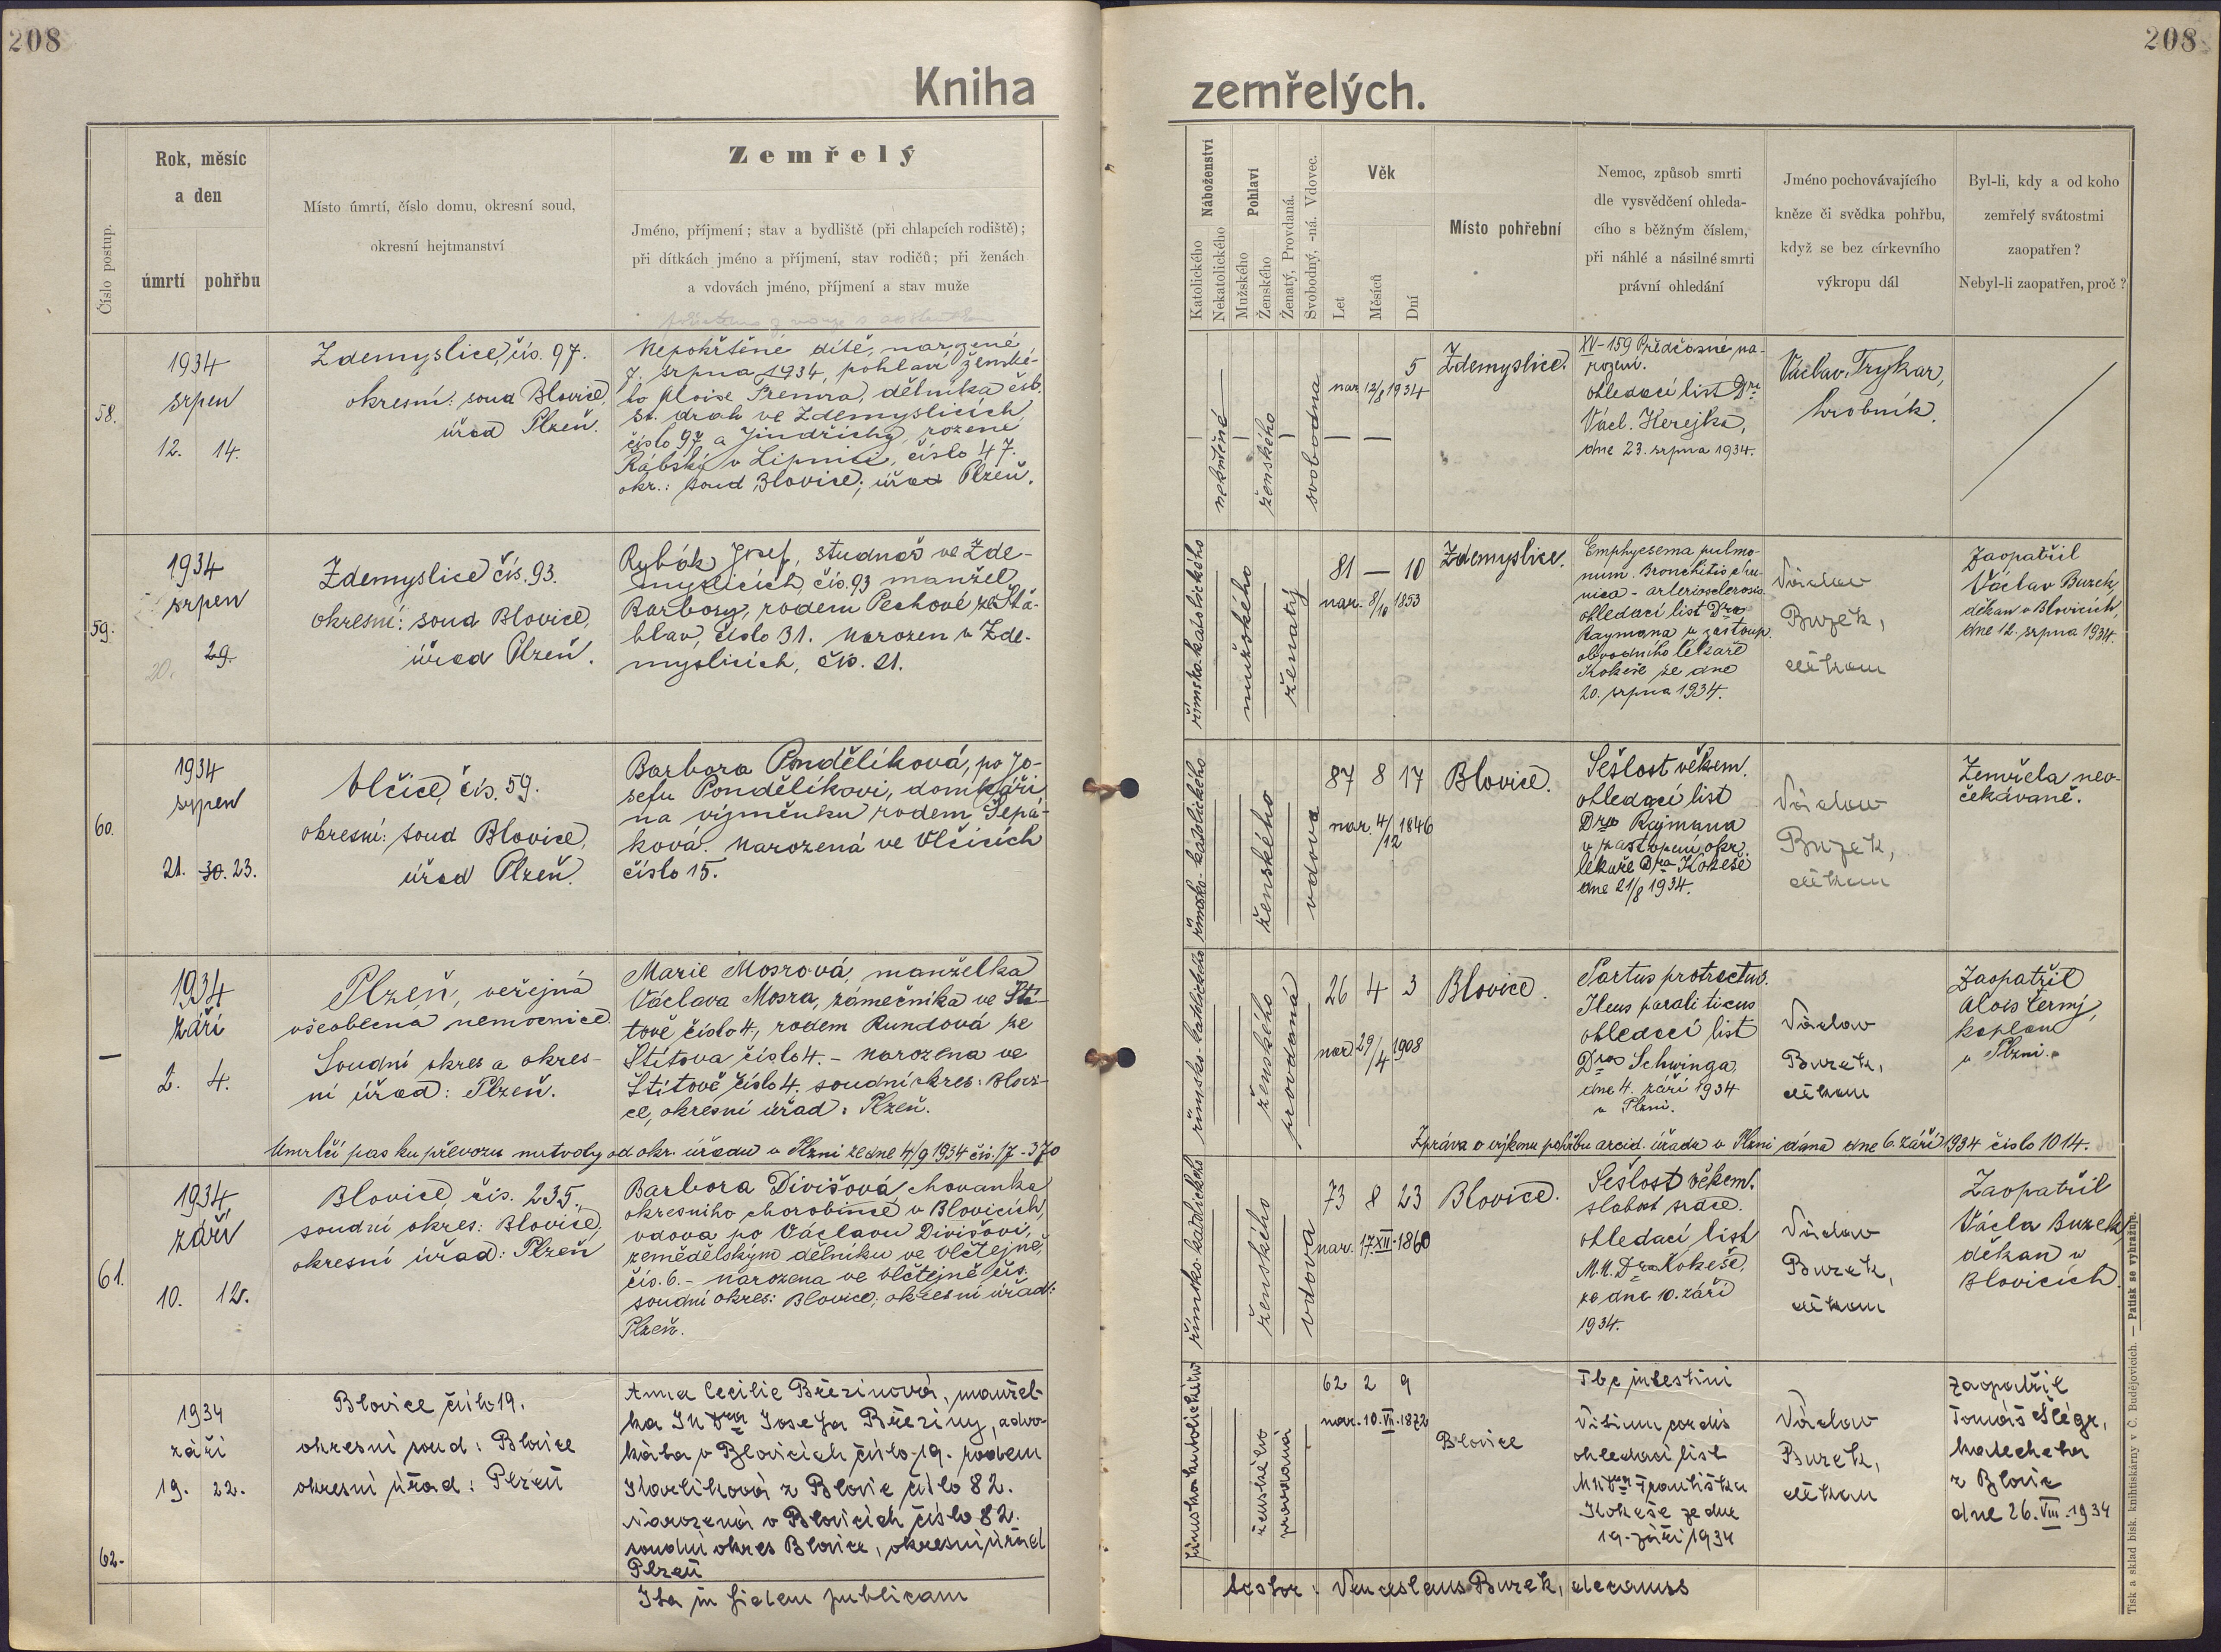 208
208
Kniha
zemřelých.
Číslo postup.
Rok, měsíc
a den
úmrtí
pohřbu
Místo úmrtí, číslo domu, okresní soud,
okresní hejtmanství
Zemřelý
Jméno, příjmení; stav a bydliště (při chlapcích rodiště);
při dítkách jméno a příjmení, stav rodičů; při ženách
a vdovách jméno, příjmení a stav muže
Náboženství
Katolického
Nekatolického
Pohlaví
Mužského
Ženského
Ženatý, Provdaná.
Svobodný, -ná. Vdovec.
Věk
Let
Měsíců
Dní
Místo pohřební
Nemoc, způsob smrti
dle vysvědčení ohleda-
cího s běžným číslem,
při náhlé a násilné smrti
právní ohledání
Jméno pochovávajícího
kněze či svědka pohřbu,
když se bez církevního
výkropu dál
Byl-li, kdy a od koho
zemřelý svátostmi
zaopatřen?
Nebyl-li zaopatřen, proč?
58.
1934
srpen
12. 14.
Zdemyslice, čís. 97.
okresní: soud Blovice,
úřad Plzeň.
Nepokřtěné dítě, narozené
7. srpna 1934, pohlaví ženské-
ho Aloise dělníka čsl.
st. drah ve Zdemyslicích
číslo 97 a Jindřichy, rozené
Rábský v Lipnici, číslo 47.
okr.: soud Blovice; úřad Plzeň.
nekřtěné
ženského
svobodna
— — 5
nar. 12/8 1934
Zdemyslice.
XV-159 Předčasné na-
rození.
ohledací list Dra
Václ. Herejka,
dne 23. srpna 1934.
Václav Trykar,
hrobník.
59.
1934
srpen
20. 29.
Zdemyslice čís. 93.
okresní: soud Blovice,
úřad Plzeň.
Rybák Josef, studnař ve Zde-
myslicích, čís. 93 manžel
Barbory, rodem Pechové ze Štá-
hlav, číslo 31. Narozen v Zde-
myslicích, čís. 21.
římsko-katolického
mužského
ženatý
81 — 10
nar. 8/10 1853
Zdemyslice.
Emphysema pulmo-
num. Bronchitis chro-
nica - arteriosclerosis.
ohledací list Dra
Raymana v zastoup.
obvodního lékaře
Kokeše ze dne
20. srpna 1934.
Václav
Buzek,
děkan
Zaopatřil
Václav Buzek,
děkan v Blovicích,
dne 12. srpna 1934.
60.
1934
srpen
21. 30. 23.
Vlčice, čís. 59.
okresní: soud Blovice,
úřad Plzeň.
Barbora Pondělíková, po Jo-
sefu Pondělíkovi, domkáři
na výměnku rodem Šepá-
ková. Narozená ve Vlčicích
číslo 15.
římsko-katolického
ženského
vdova
87 8 17
nar. 4/12 1846
Blovice.
Sešlost věkem.
ohledací list
Dra Rajmana
v zastoupení okr.
lékaře Dra Kokeše
dne 21/8 1934.
Václav
Buzek,
děkan
Zemřela neo-
čekávaně.
—
1934
září
2. 4.
Plzeň, veřejná
všeobecná nemocnice.
Soudní okres a okres-
ní úřad: Plzeň.
Marie Mosrová, manželka
Václava Mosra, zámečníka ve Ští-
tově číslo 4., rodem Rundová ze
Štítova číslo 4. - Narozena ve
Štítově číslo 4. soudní okres: Blovi-
ce, okresní úřad: Plzeň.
římsko-katolického
ženského
provdaná
26 4 3
nar. 29/4 1908
Blovice.
Partus protractus.
Ileus paraliticus
ohledací list
Dra Schwinga
dne 4. září 1934
v Plzni.
Václav
Buzek,
děkan
Zaopatřil
Alois Černý,
kaplan
v Plzni.
Umrlčí pas ku převozu mrtvoly od okr. úřadu v Plzni ze dne 4/9 1934 čís. 17-370
Zpráva o výkonu pohřbu arcid. úřadu v Plzni dána dne 6. září 1934 číslo 1014.
61.
1934
září
10. 12.
Blovice, čís. 235.
soudní okres: Blovice,
okresní úřad: Plzeň
Barbora Divišová chovanka
okresního chorobince v Blovicích,
vdova po Václavu Divišovi,
zemědělským dělníku ve Vlčtejně,
čís. 6. - narozena ve Vlčtejně čís.
soudní okres: Blovice; okresní úřad:
Plzeň.
římsko-katolického
ženského
vdova
73 8 23
nar. 17.XII.1860
Blovice.
Sešlost věkem.
slabost srdce.
ohledací list
M.U.Dra Kokeše,
ze dne 10. září
1934.
Václav
Buzek,
děkan
Zaopatřil
Václa Buzek,
děkan v
Blovicích.
62.
1934
září
19. 22.
Blovice číslo 19.
okresní soud: Blovice
okresní úřad: Plzeň
Anna Cecilie Březinová, manžel-
ka JUDra Josefa Březiny, advo-
káta v Blovicích číslo 19. rodem
Karlíková z Blovic číslo 82.
Narozená v Blovicích číslo 82.
soudní okres Blovice, okresní úřad
Plzeň
římskokatolického
ženského
provdaná
62 2 9
nar. 10.VII.1872
Blovice
Tbc intestini
Vitium cordis
ohledací list
MUDra Františka
Kokeše ze dne
19. září 1934
Václav
Buzek,
děkan
Zaopatřil
Tomáš Šlégr,
katecheta
z Blovic
dne 26.VIII.1934
Ita in fidem publicam
testor: Venceslaus Buzek, decanus
Tisk a sklad bisk. knihtiskárny v Č. Budějovicích. — Patisk se vyhražuje.